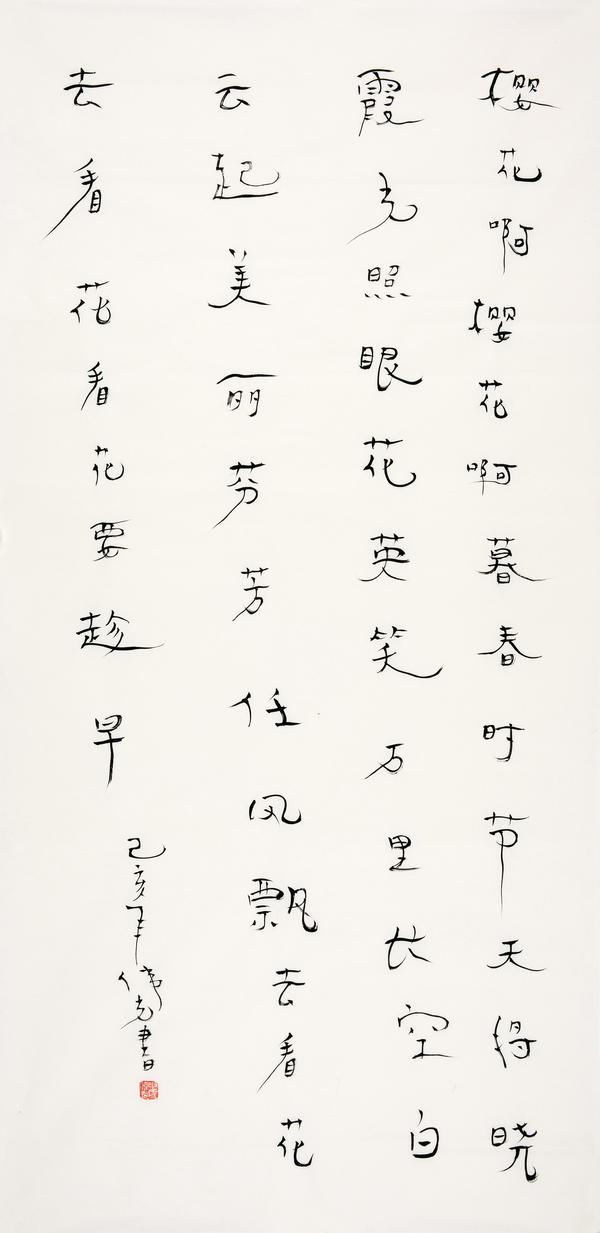 樱花啊樱花啊暮春时节天将晓
霞光照眼花英笑万里长空白
云起美丽芬芳任风飘去看花
去看花看花要趁早
己亥年伟光書